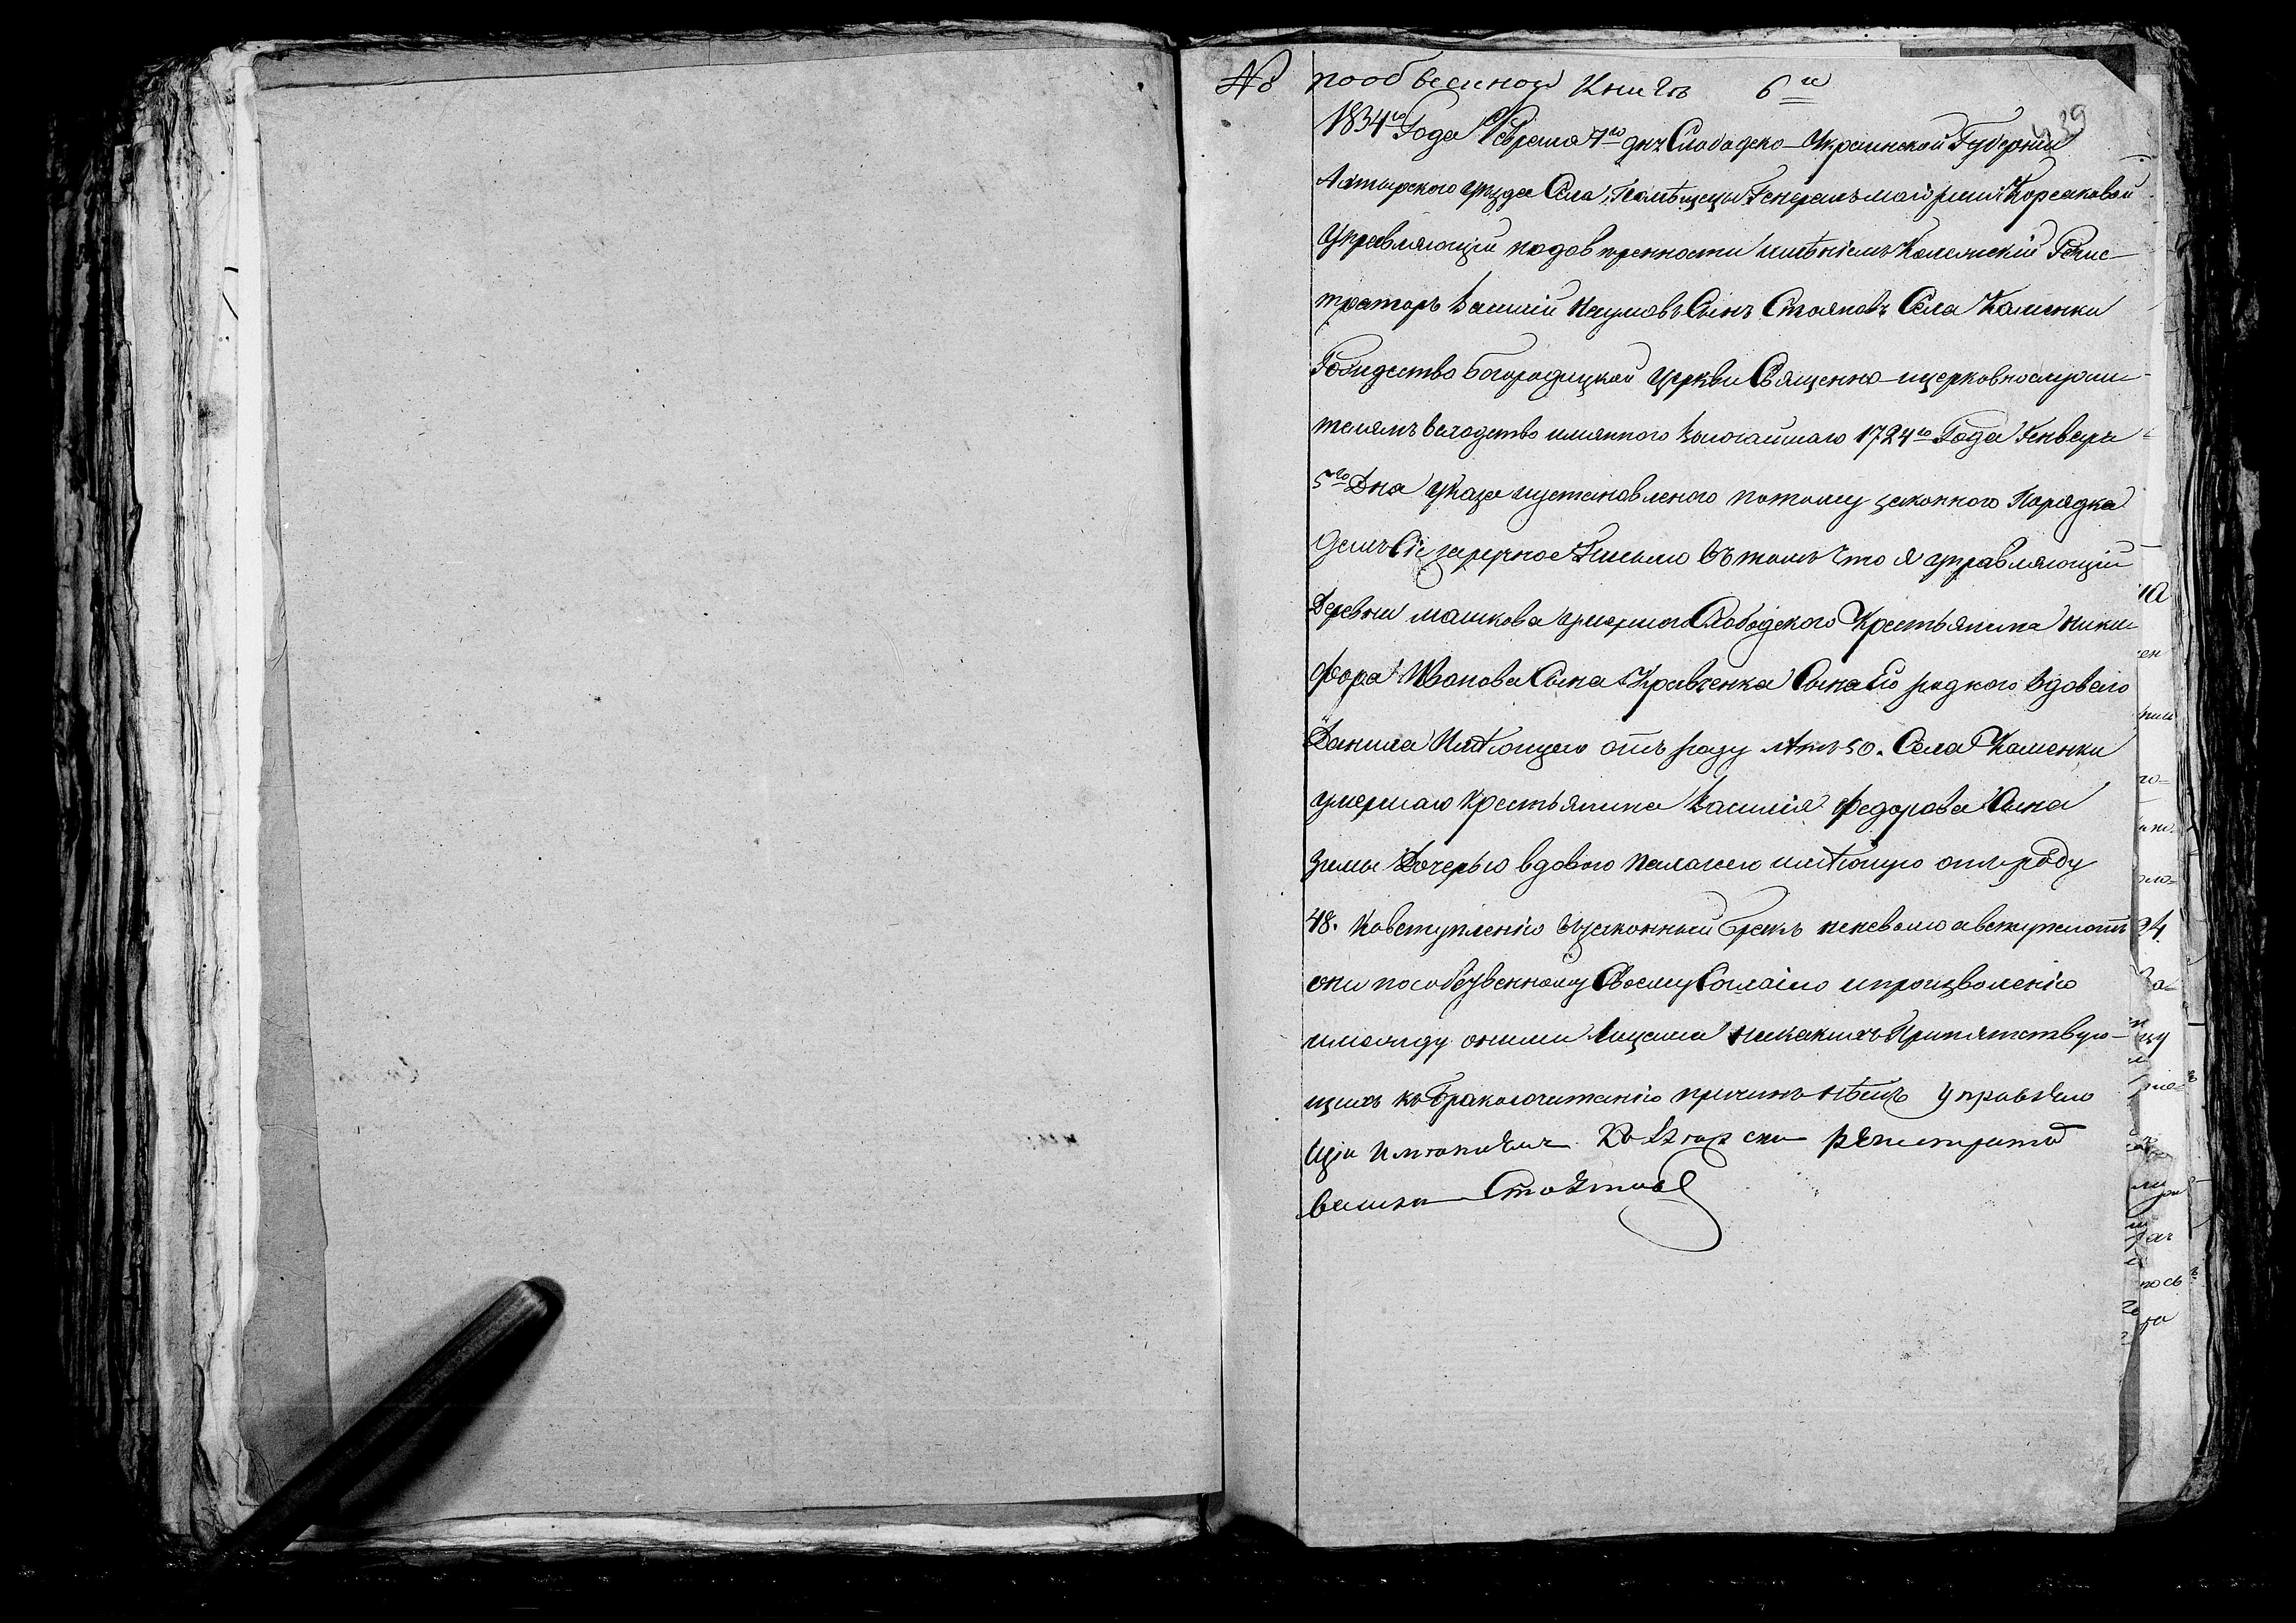 № пообыскной Книгѣ 6го
39
1834го Года Февраля 7го дня Слободско-Украинской Губернии
Ахтырского уезда Села, Помѣщицы Генералъ маиорши Корсаковой
Управляющій подовѣренности имѣніемъ Колежскій Регис-
траторъ Василій Наумовъ Сынъ Стояновъ Села Каменки
Рождество Богородицкой церкви Священно-ицерковнослужи-
телямъ вследство имянного высочайшаго 1724го Года Генваря
5го Дня указа иустановленого потому законного Порядка
далъ Сіе заручное Письмо въ томъ что я управляющій
Деревни машкова умершого Слободского Крестьянина ники-
фора Иванова Сына Кравченка Сына Его родного вдового
Данила Имѣющего отъ роду лѣтъ 50. Села Каменки
умершаго крестьянина Василія федорова Сына
Зимы Дочерью вдовою Пелагеею имѣющую отъ роду
48. Ковступленію взаконный бракъ неневолю авступаютъ
они пособственному Своему Согласію ипроизволенію
имежду оними Лицами никакихъ Препятствую-
щихъ къ бракосочитанію причинъ нѣтъ управляю
щій имѣніемъ регистраторъ
василий Стояновъ